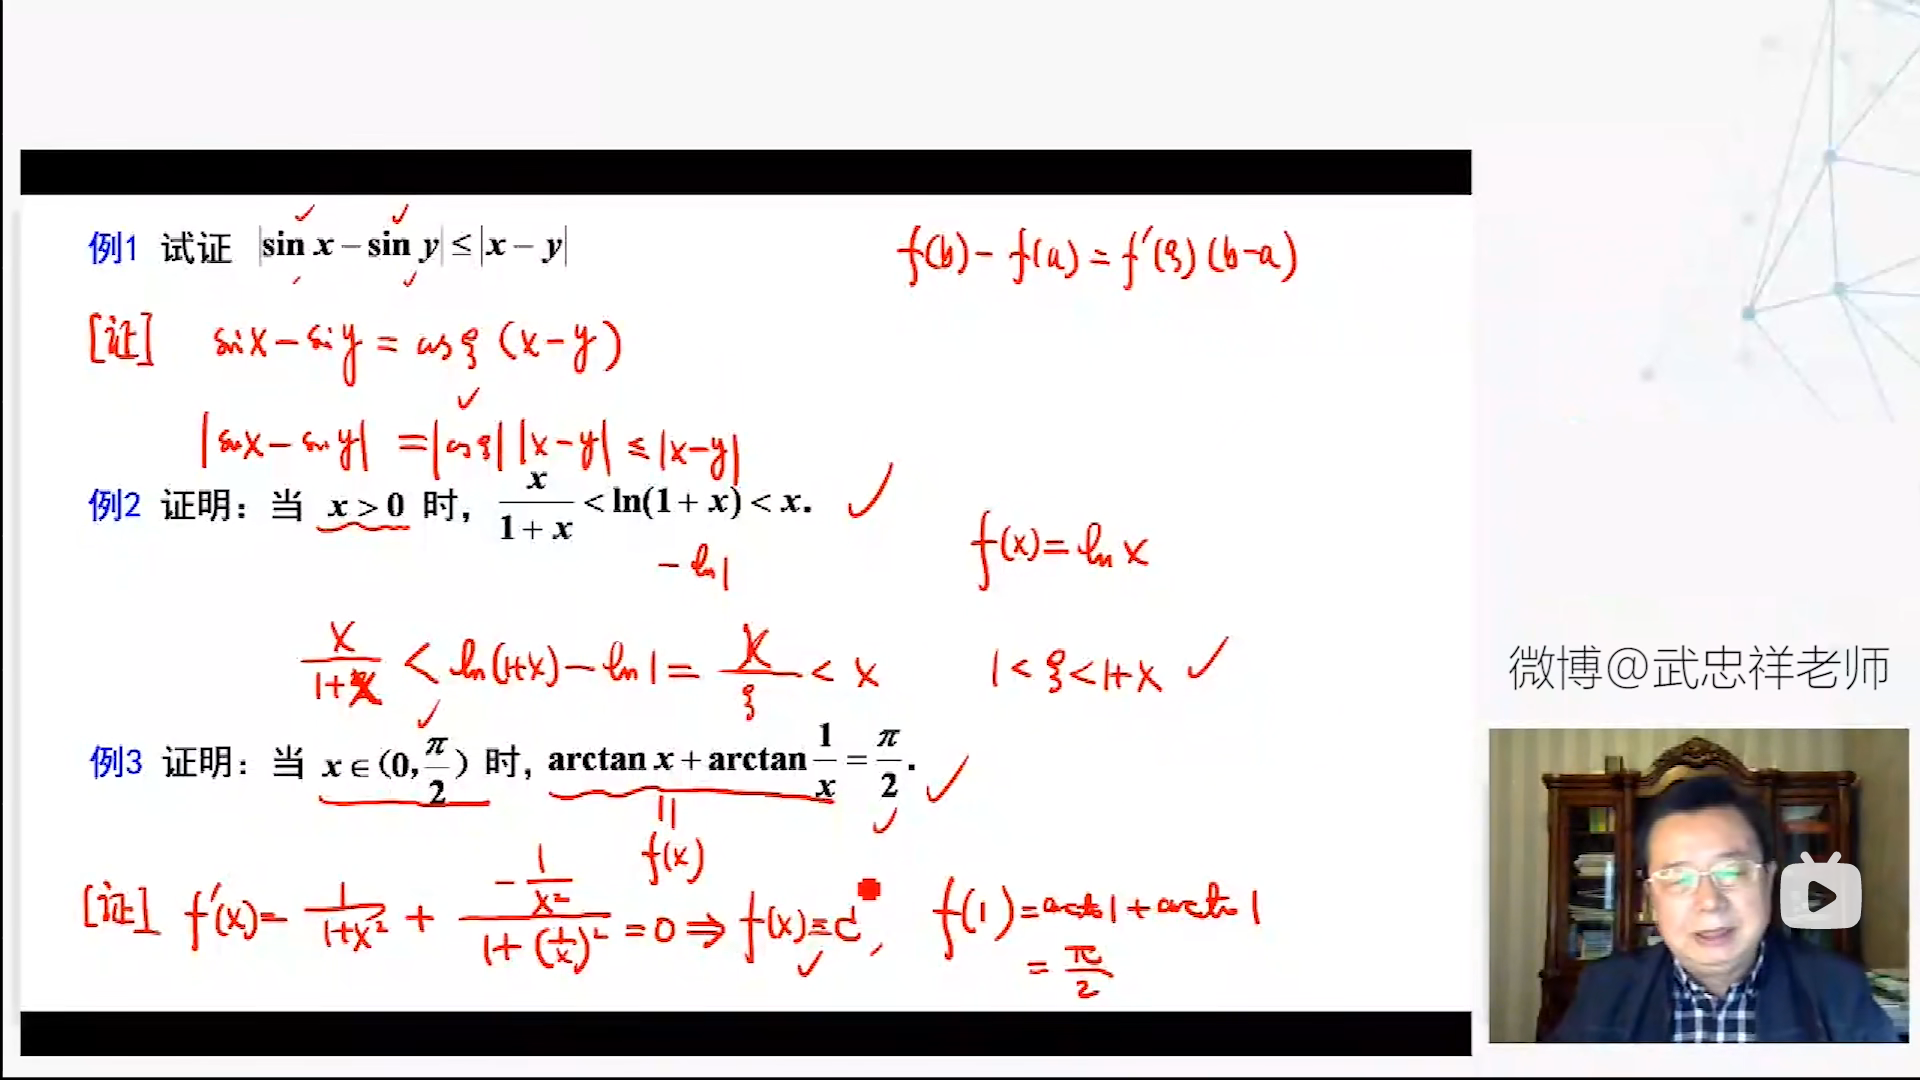 例1 试证 |sin x − sin y| ≤ |x − y|
f(b) - f(a) = f'(ξ)(b-a)
[证] sinx - siny = cosξ (x-y)
|sinx - siny| = |cosξ| |x-y| ≤ |x-y|
例2 证明：当 x > 0 时， x/(1+x) < ln(1+x) < x.
- ln1
f(x) = ln x
x/(1+x) < ln(1+x) - ln1 = x/ξ < x    1 < ξ < 1+x
微博@武忠祥老师
例3 证明：当 x∈(0, π/2) 时, arctan x + arctan 1/x = π/2.
f(x)
[证] f'(x) = 1/(1+x²) + (-1/x²)/(1+(1/x)²) = 0 ⇒ f(x) ≡ C, f(1) = arctan1 + arctan1
= π/2